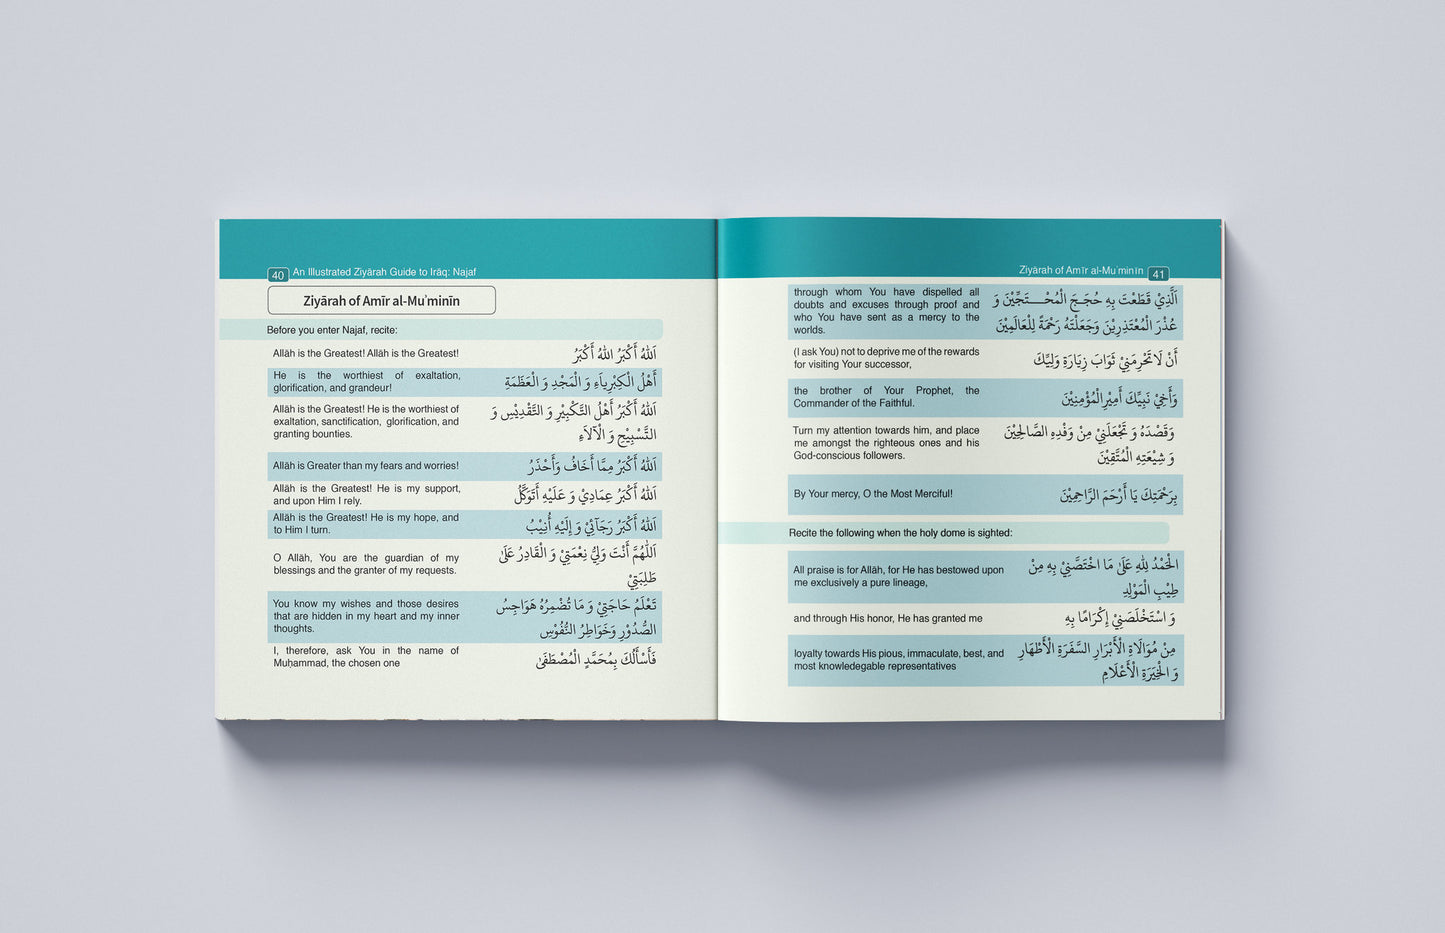 40 An Illustrated Ziyārah Guide to Irāq: Najaf
Ziyārah of Amīr al-Muʾminīn
Before you enter Najaf, recite:
Allāh is the Greatest! Allāh is the Greatest!
اَللهُ أَكْبَرُ اللهُ أَكْبَرُ
He is the worthiest of exaltation,
glorification, and grandeur!
أَهْلُ الْكِبْرِيَاءِ وَ الْمَجْدِ وَ الْعَظَمَةِ
Allāh is the Greatest! He is the worthiest of
exaltation, sanctification, glorification, and
granting bounties.
اَللهُ أَكْبَرُ أَهْلُ التَّكْبِيْرِ وَ التَّقْدِيْسِ وَ
التَّسْبِيْحِ وَ الْآلَاءِ
Allāh is Greater than my fears and worries!
اَللهُ أَكْبَرُ مِمَّا أَخَافُ وَأَحْذَرُ
Allāh is the Greatest! He is my support,
and upon Him I rely.
اَللهُ أَكْبَرُ عِمَادِيْ وَ عَلَيْهِ أَتَوَكَّلُ
Allāh is the Greatest! He is my hope, and
to Him I turn.
اَللهُ أَكْبَرُ رَجَآئِيْ وَ إِلَيْهِ أُنِيْبُ
O Allāh, You are the guardian of my
blessings and the granter of my requests.
اَللّٰهُمَّ أَنْتَ وَلِيُّ نِعْمَتِيْ وَ الْقَادِرُ عَلَىٰ
طَلِبَتِيْ
You know my wishes and those desires
that are hidden in my heart and my inner
thoughts.
تَعْلَمُ حَاجَتِيْ وَ مَا تُضْمِرُهُ هَوَاجِسُ
الصُّدُوْرِ وَخَوَاطِرُ النُّفُوْسِ
I, therefore, ask You in the name of
Muḥammad, the chosen one
فَأَسْأَلُكَ بِمُحَمَّدٍ الْمُصْطَفَىٰ
Ziyārah of Amīr al-Muʾminīn 41
through whom You have dispelled all
doubts and excuses through proof and
who You have sent as a mercy to the
worlds.
اَلَّذِيْ قَطَعْتَ بِهِ حُجَجَ الْمُحْـــتَجِّيْنَ وَ
عُذْرَ الْمُعْتَذِرِيْنَ وَجَعَلْتَهُ رَحْمَةً لِلْعَالَمِيْنَ
(I ask You) not to deprive me of the rewards
for visiting Your successor,
أَنْ لَا تَحْرِمَنِيْ ثَوَابَ زِيَارَةِ وَلِيِّكَ
the brother of Your Prophet, the
Commander of the Faithful.
وَأَخِيْ نَبِيِّكَ أَمِيْرِالْمُؤْمِنِيْنَ
Turn my attention towards him, and place
me amongst the righteous ones and his
God-conscious followers.
وَقَصْدَهُ وَ تَجْعَلَنِيْ مِنْ وَفْدِهِ الصَّالِحِيْنَ
وَ شِيْعَتِهِ الْمُتَّقِيْنَ
By Your mercy, O the Most Merciful!
بِرَحْمَتِكَ يَا أَرْحَمَ الرَّاحِمِيْنَ
Recite the following when the holy dome is sighted:
All praise is for Allāh, for He has bestowed upon
me exclusively a pure lineage,
الْحَمْدُ لِلّٰهِ عَلَىٰ مَا اخْتَصَّنِيْ بِهِ مِنْ
طِيْبِ الْمَوْلِدِ
and through His honor, He has granted me
وَ اسْتَخْلَصَنِيْ إِكْرَامًا بِهِ
loyalty towards His pious, immaculate, best, and
most knowledegable representatives
مِنْ مُوَالَاةِ الْأَبْرَارِ السَّفَرَةِ الْأَطْهَارِ
وَ الْخِيَرَةِ الْأَعْلَامِ